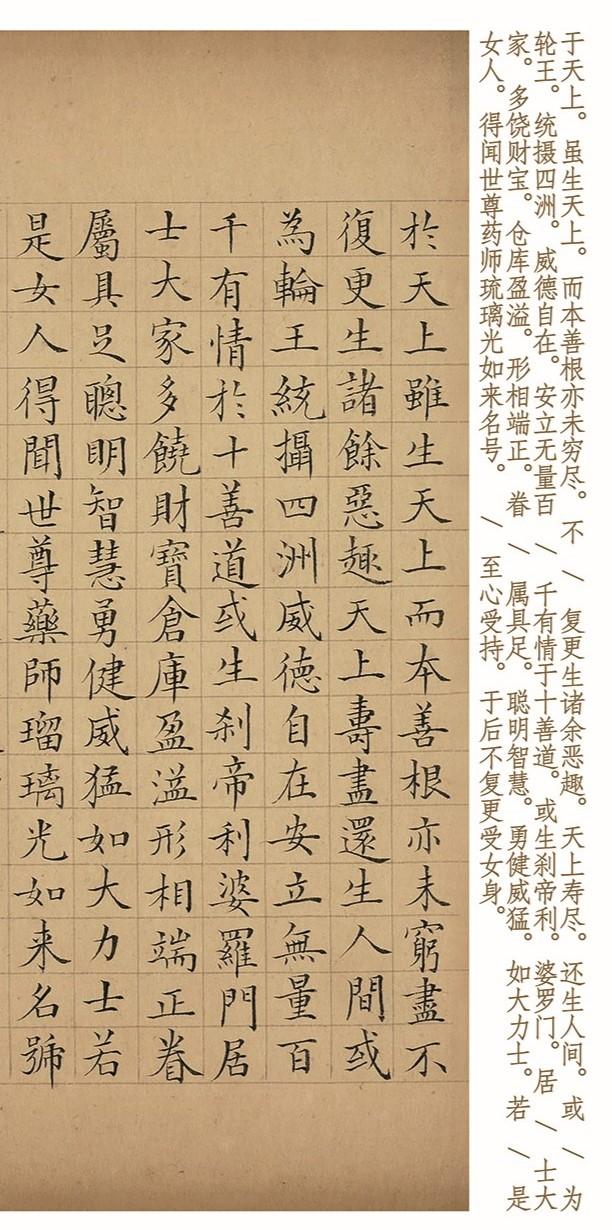 于天上。虽生天上。而本善根亦未穷尽。不 / 复更生诸余恶趣。天上寿尽。还生人间。或 / 为
轮王。统摄四洲。威德自在。安立无量百 / 千有情于十善道。或生刹帝利。婆罗门。居 / 士大
家。多饶财宝。仓库盈溢。形相端正。眷 / 属具足。聪明智慧。勇健威猛。如大力士。若 / 是
女人。得闻世尊药师琉璃光如来名号。 / 至心受持。于后不复更受女身。
於天上雖生天上而本善根亦未窮盡不
復更生諸餘惡趣天上壽盡還生人間或
為輪王統攝四洲威德自在安立無量百
千有情於十善道或生刹帝利婆羅門居
士大家多饒財寶倉庫盈溢形相端正眷
屬具足聰明智慧勇健威猛如大力士若
是女人得聞世尊藥師瑠璃光如来名號